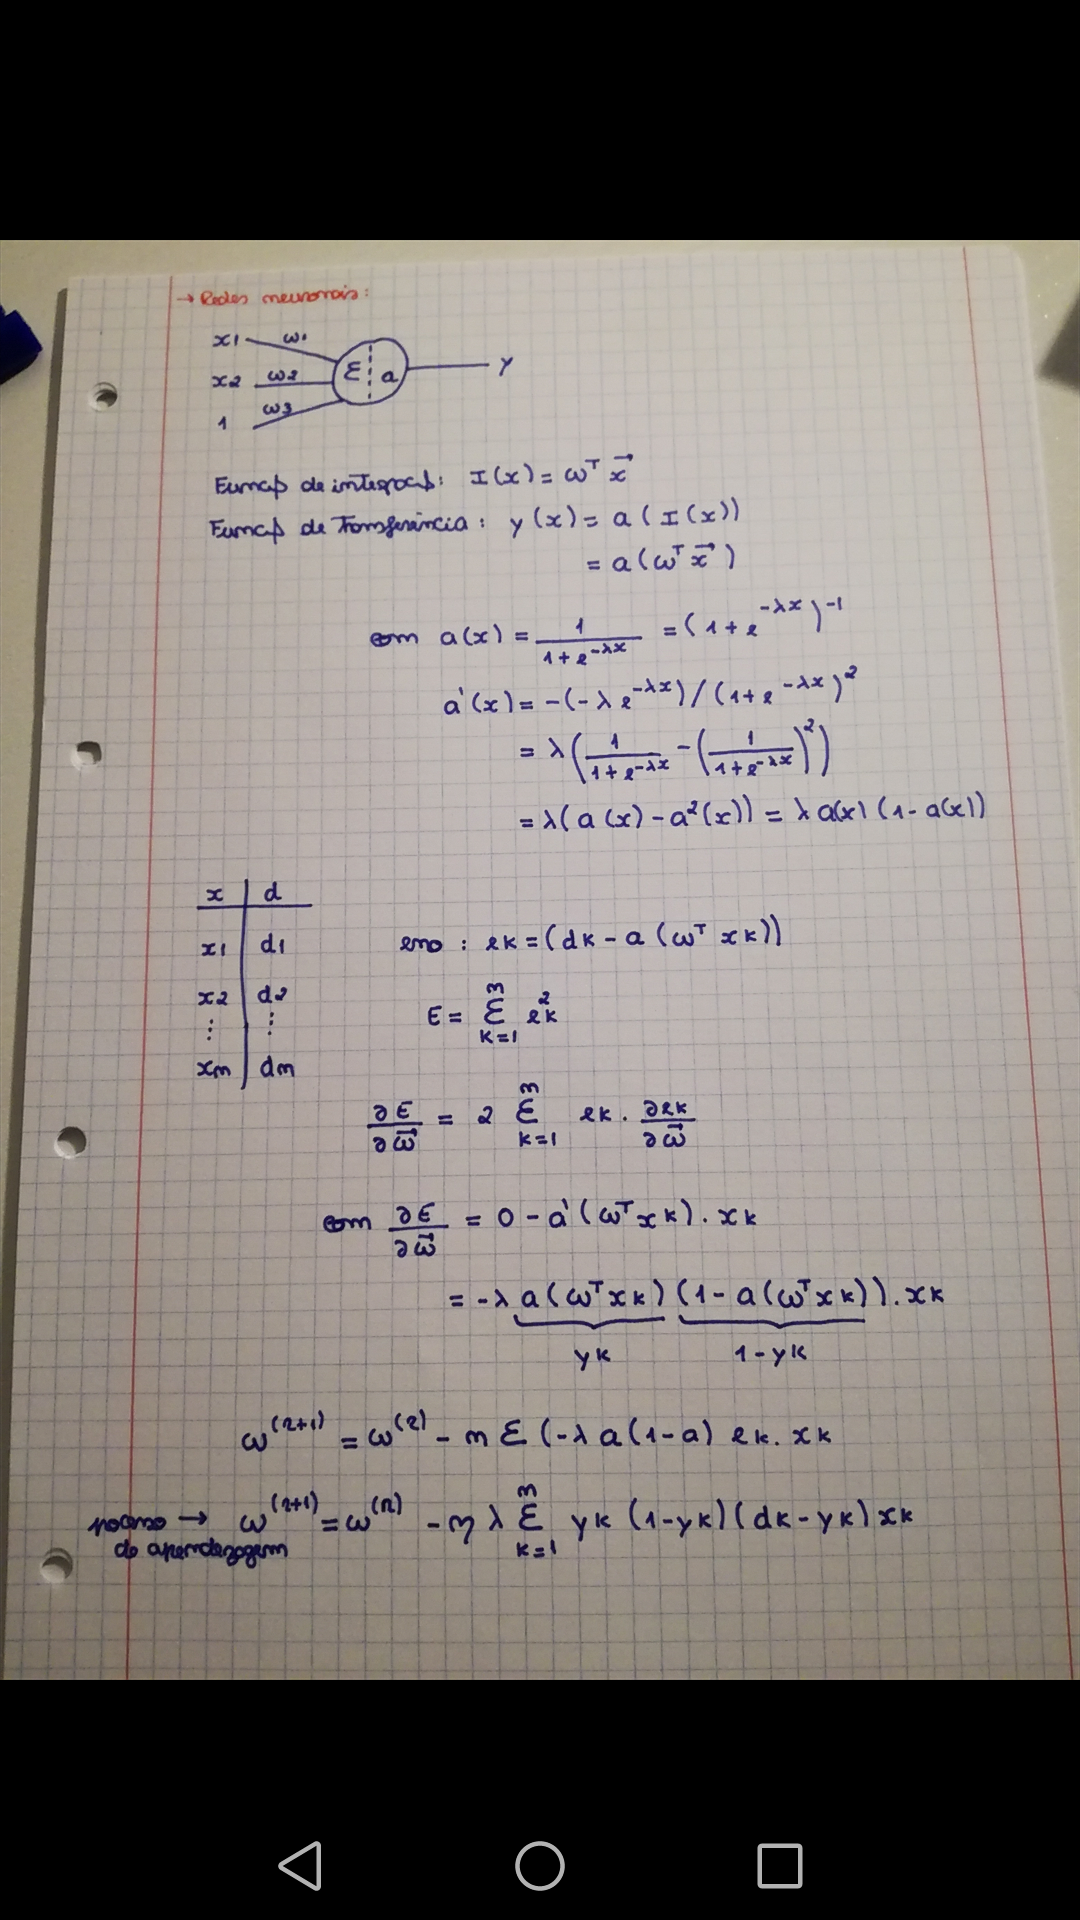 → Redes neuronais:
x1 ω1
x2 ω2 Σ a y
1 ω3
Função de integração: I(x) = ωᵀ x⃗
Função de Transferência: y(x) = a(I(x))
= a(ωᵀ x⃗)
com a(x) = 1/(1+e^(-λx)) = (1+e^(-λx))^(-1)
a'(x) = -(-λe^(-λx))/(1+e^(-λx))^2
= λ(1/(1+e^(-λx)) - (1/(1+e^(-λx)))^2)
= λ(a(x) - a²(x)) = λ a(x) (1 - a(x))
x | d
x1 | d1
erro: ek = (dk - a(ωᵀ xk))
x2 | d2
⋮ | ⋮
E = Σ_{k=1}^{m} ek²
xm | dm
∂E/∂ω⃗ = 2 Σ_{k=1}^{m} ek . ∂ek/∂ω⃗
com ∂E/∂ω⃗ = 0 - a'(ωᵀxk) . xk
= -λ a(ωᵀxk) (1 - a(ωᵀxk)) . xk
yk 1-yk
ω^(r+1) = ω^(r) - η Σ (-λ a(1-a) ek . xk
processo → ω^(r+1) = ω^(r) - η λ Σ_{k=1}^{m} yk (1-yk) (dk-yk) xk
de aprendizagem